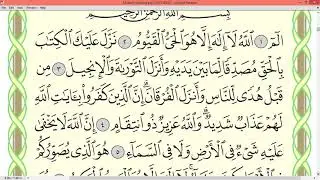 بِسْمِ اللَّهِ الرَّحْمَٰنِ الرَّحِيمِ
الٓمٓ ١ اللَّهُ لَآ إِلَٰهَ إِلَّا هُوَ الْحَيُّ الْقَيُّومُ ٢ نَزَّلَ عَلَيْكَ الْكِتَٰبَ
بِالْحَقِّ مُصَدِّقًا لِّمَا بَيْنَ يَدَيْهِ وَأَنزَلَ التَّوْرَىٰةَ وَالْإِنجِيلَ ٣ مِن
قَبْلُ هُدًى لِّلنَّاسِ وَأَنزَلَ الْفُرْقَانَ إِنَّ الَّذِينَ كَفَرُوا بِـَٔايَٰتِ اللَّهِ
لَهُمْ عَذَابٌ شَدِيدٌ وَاللَّهُ عَزِيزٌ ذُو انتِقَامٍ ٤ إِنَّ اللَّهَ لَا يَخْفَىٰ
عَلَيْهِ شَىْءٌ فِى الْأَرْضِ وَلَا فِى السَّمَآءِ ٥ هُوَ الَّذِى يُصَوِّرُكُمْ